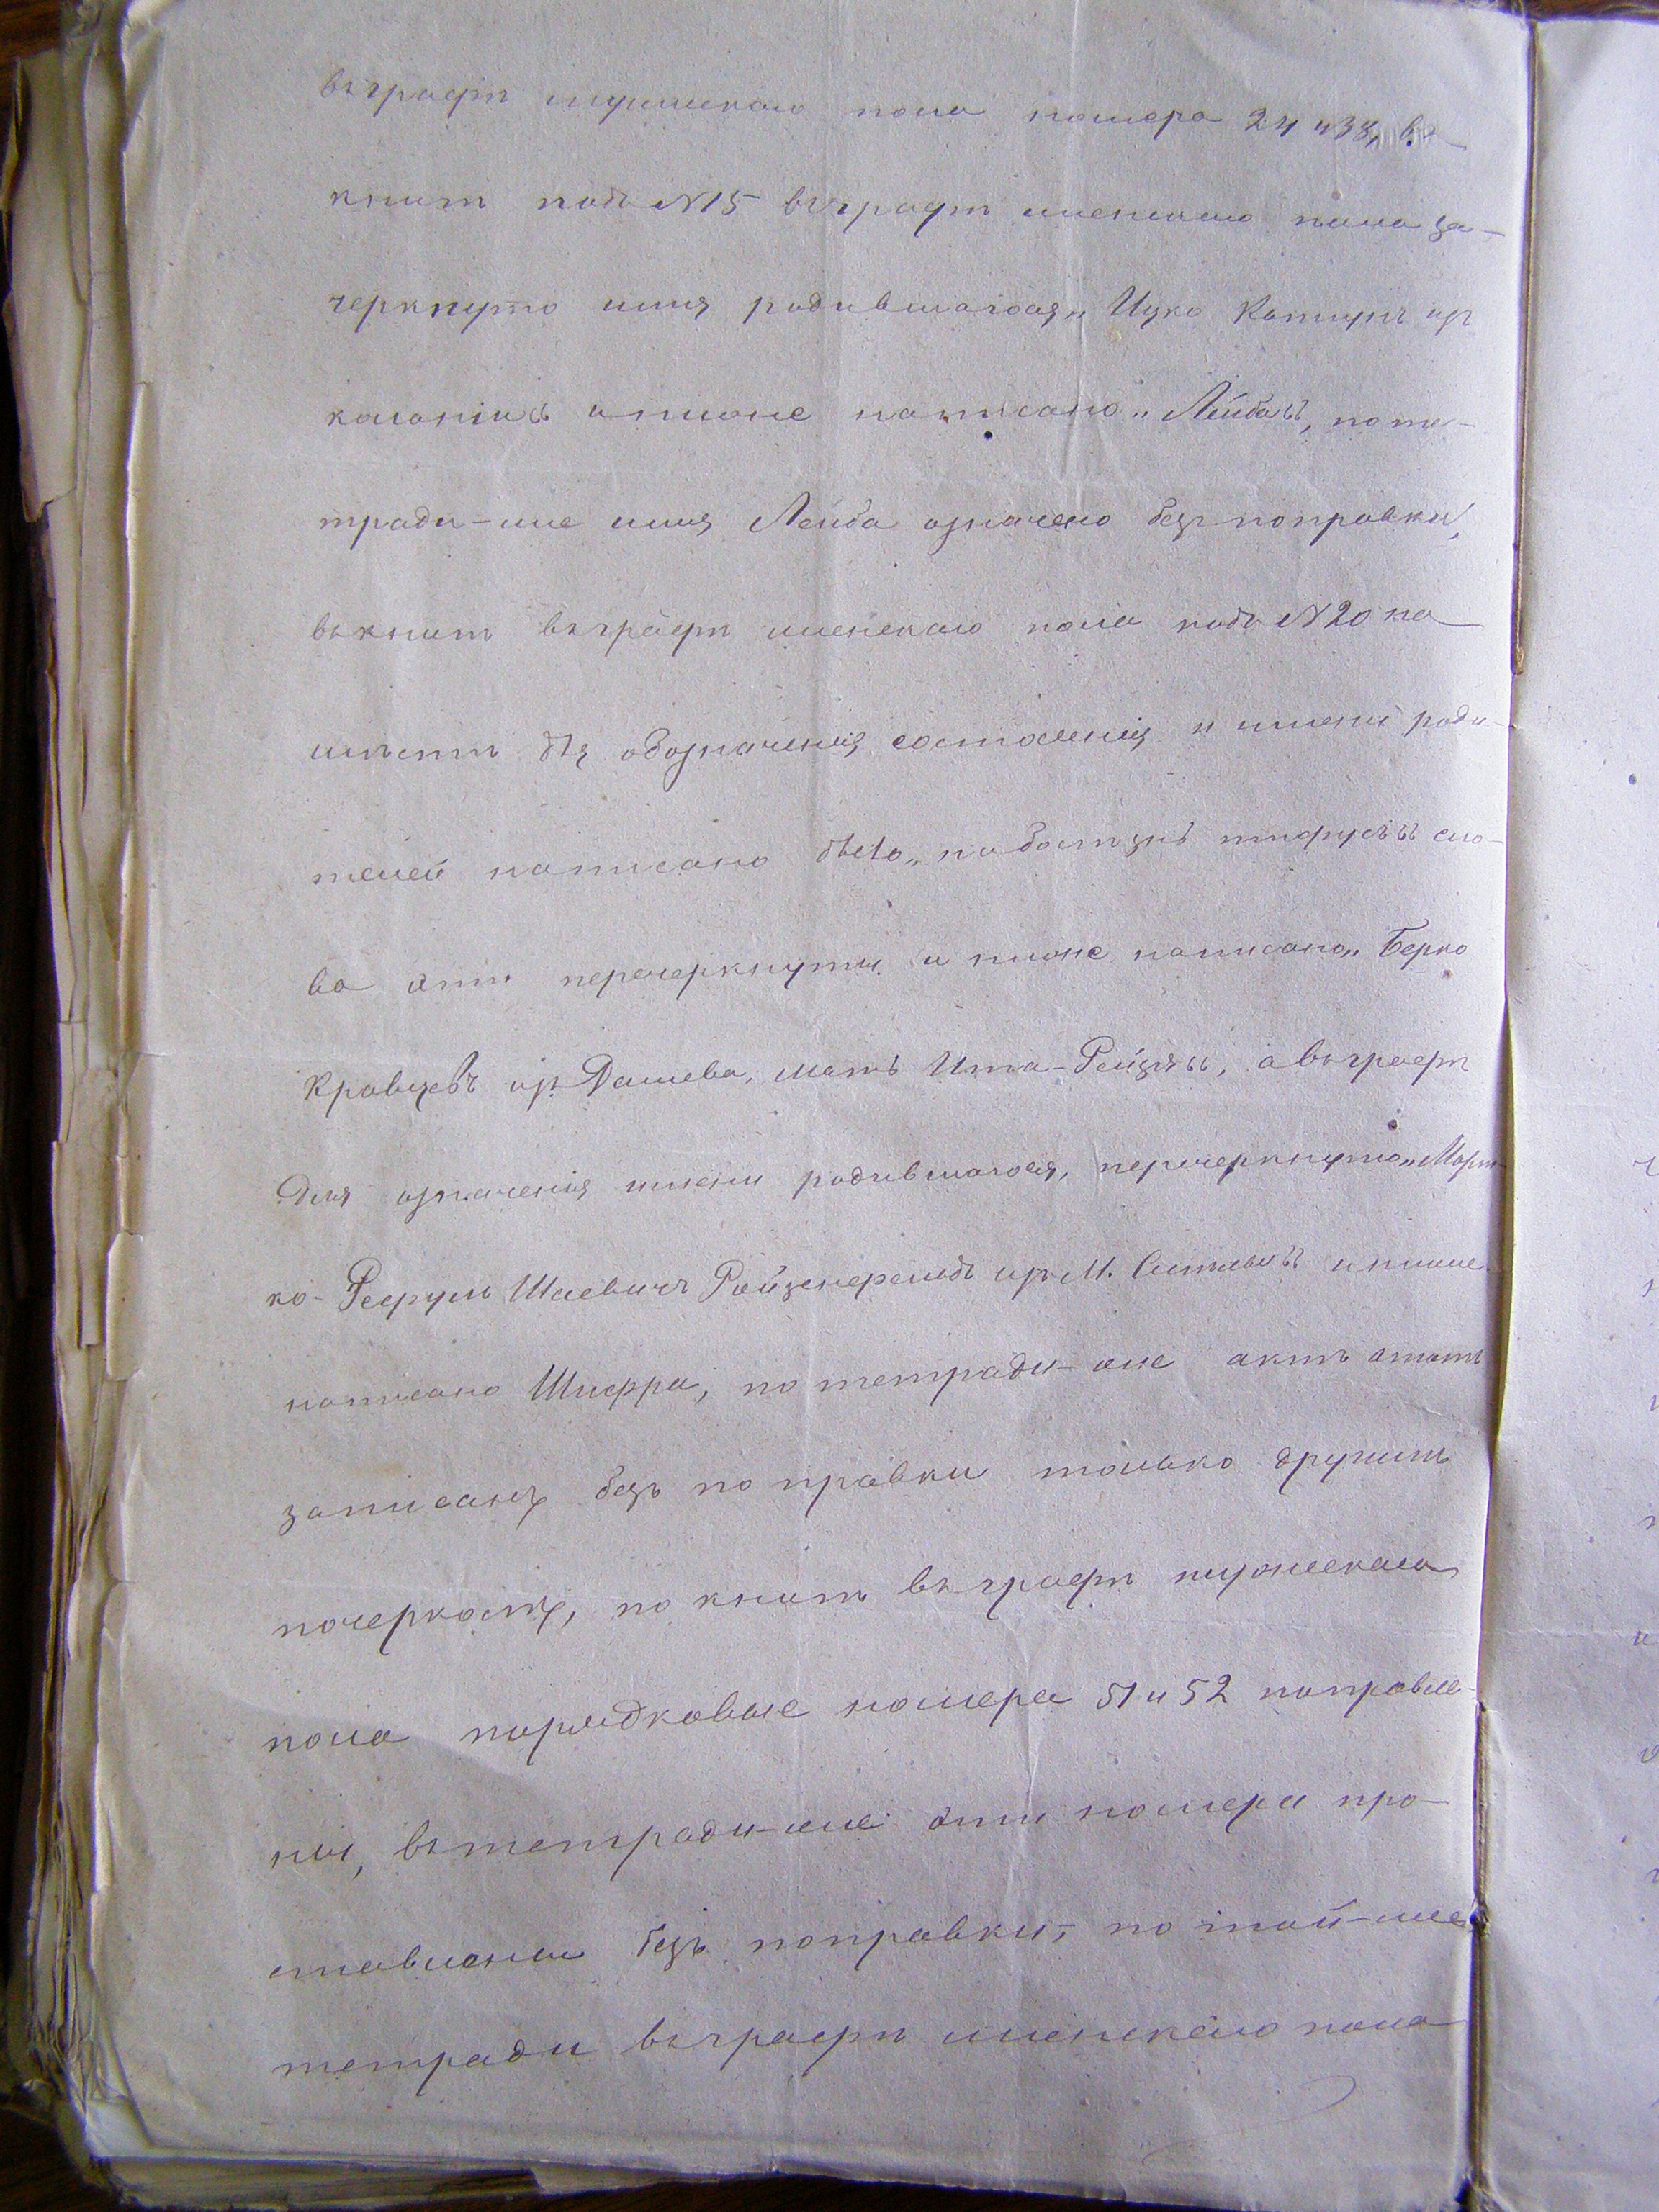 въ графѣ мужескаго пола номера 24 и 38, въ
книгѣ подъ №15 въ графѣ женскаго пола за-
черкнуто имя родившагося „Ицко Кацупъ изъ
колоніи" и ниже написано „Лейба", по те-
тради-же имя Лейба означено безъ поправки,
въ книгѣ въ графѣ женскаго пола подъ №20 на
мѣстѣ для обозначенія состоянія и имени роди-
телей написано было „на болѣзнь тифусъ" сло-
ва эти перечеркнуты и ниже написано „Берко
Кравцевъ изъ Дашева, мать Ита-Рейзя", а въ графѣ
для означенія имени родившагося, перечеркнуто „Морт-
ко-Рефулъ Шаевичъ изъ М. и ниже
написано Шифра, по тетради-же актъ этотъ
записанъ безъ поправки только другимъ
почеркомъ, по книгѣ въ графѣ мужескаго
пола порядковые номера 51 и 52 поправле-
ны, въ тетради-же эти номера про-
ставлены безъ поправки, по той-же
тетради въ графѣ женскаго пола